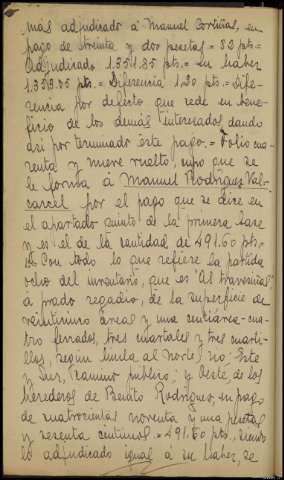 mas adjudicado á Manuel Cortiñas, en
pago de treinta y dos pesetas = 32 pts =
Adjudicado 1.351.85 pts. = Su haber
1.353.05 pts. = Diferencia 1,20 pts. = Dife-
rencia por defecto que cede en bene-
ficio de los demás interesados, dando
así por terminado este pago. = Folio cua-
renta y nueve vuelto, cupo que se
le forma á Manuel Rodríguez Val-
carcel por el pago que se dice en
el apartado quinto de la primera base
y es el de la cantidad de 491.60 pts.
Con todo lo que refiere la partida
ocho del inventario, que es "Al travesíña"
á prado regadío, de la superficie de
veinticinco áreas y una centiárea - cua-
tro ferrados, tres cuartales y tres cuarti-
llos, segun linda al Norte, río; Este
y Sur, camino público; y Oeste, de los
herederos de Benito Rodríguez, en pago
de cuatrocientas noventa y una pesetas
y sesenta céntimos. = 491,60 pts., siendo
lo adjudicado igual á su haber, se